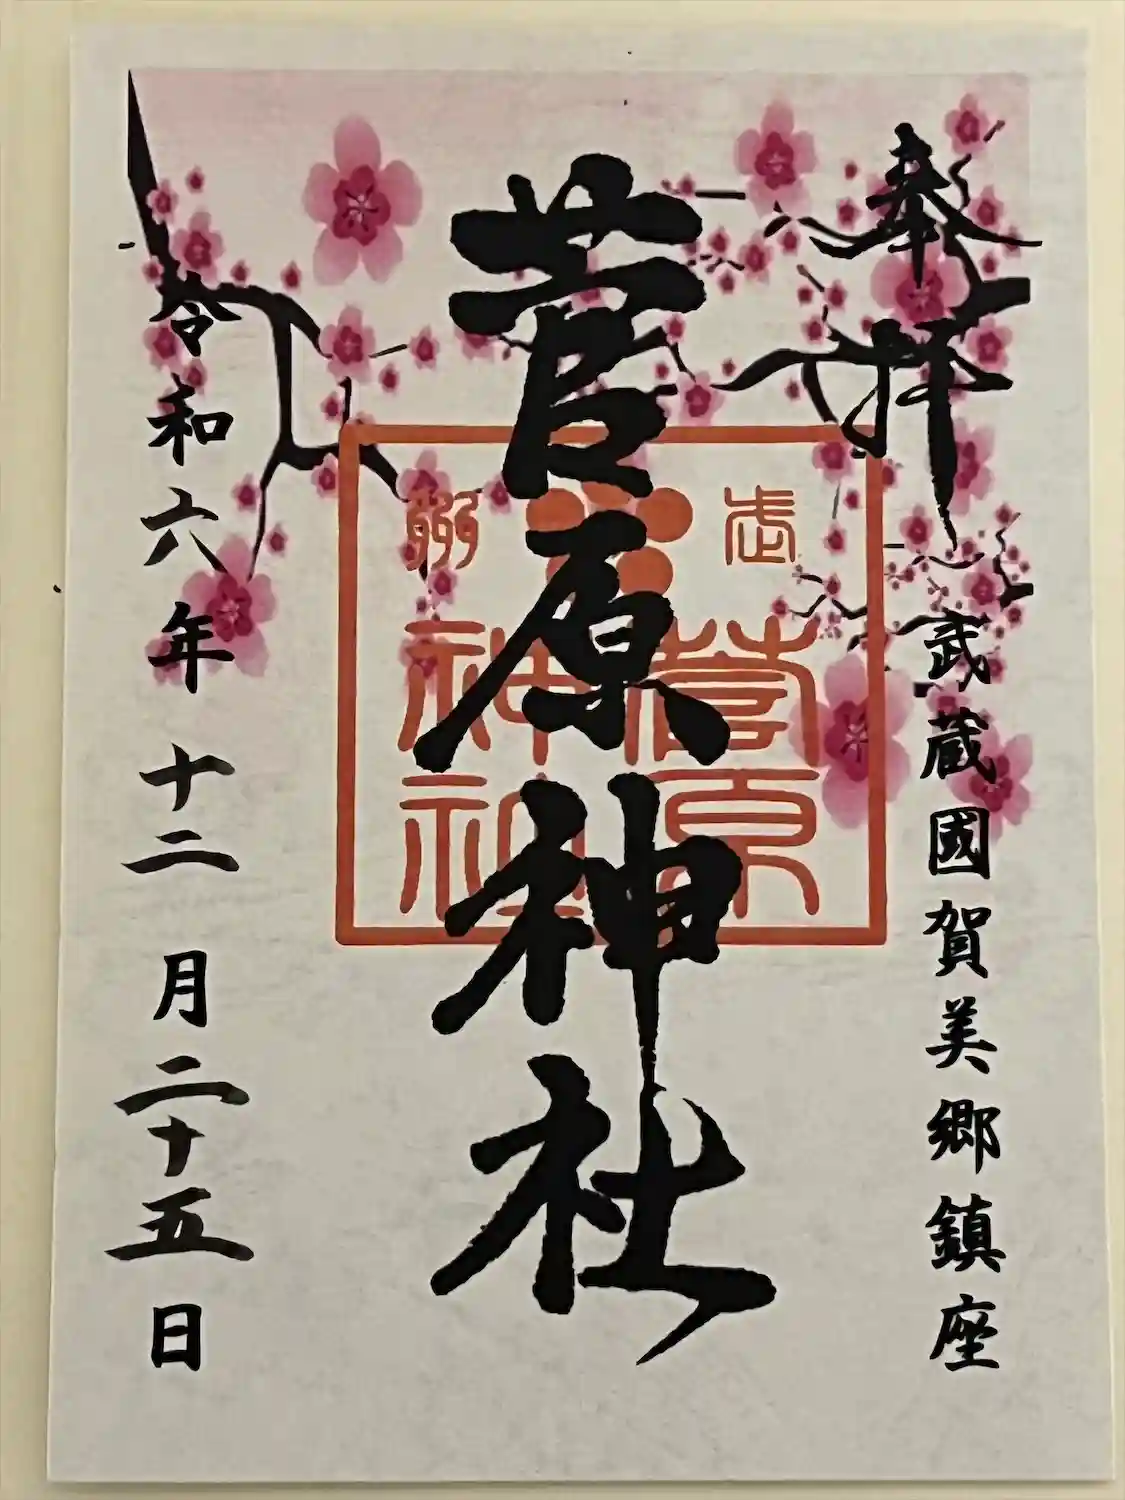 奉拝
武蔵國賀美郷鎮座
菅原神社
武
州
菅原
神社
令和六年十二月二十五日